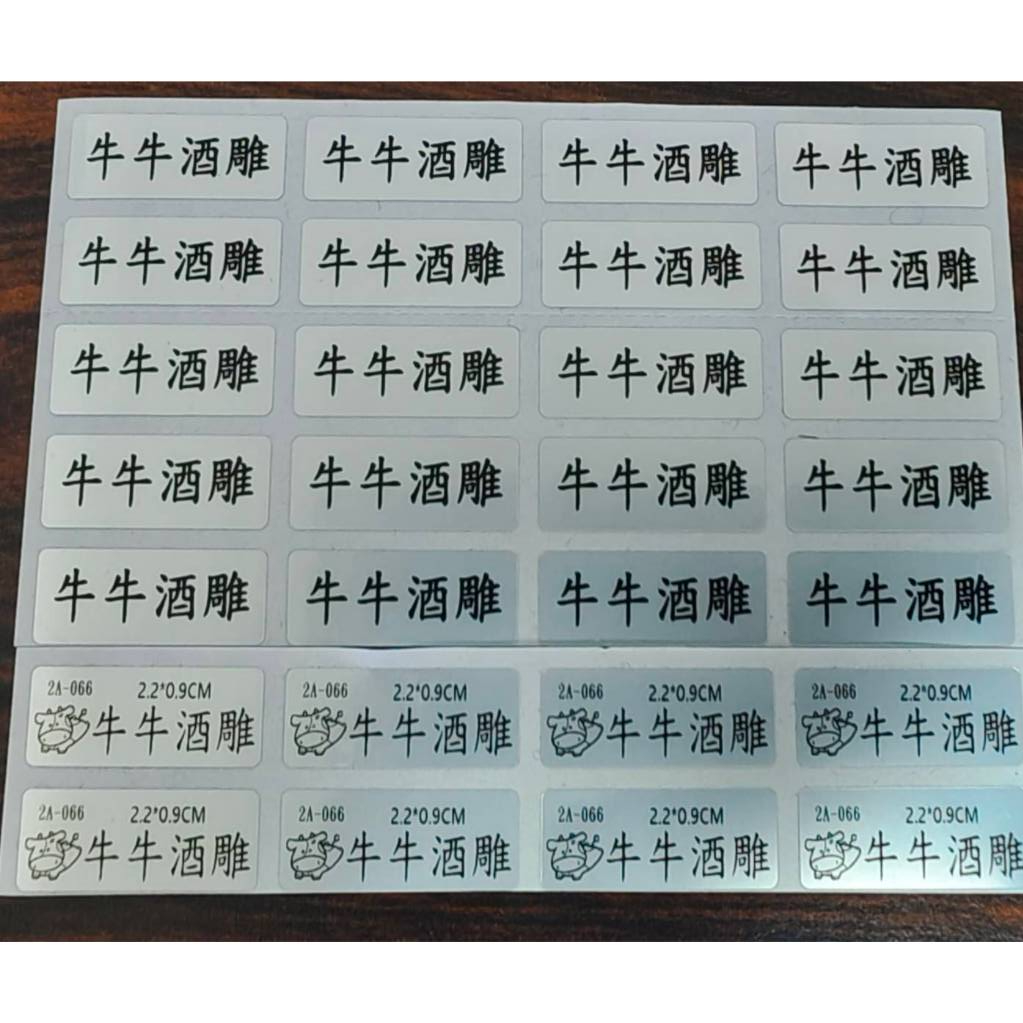 牛牛酒雕 牛牛酒雕 牛牛酒雕 牛牛酒雕
牛牛酒雕 牛牛酒雕 牛牛酒雕 牛牛酒雕
牛牛酒雕 牛牛酒雕 牛牛酒雕 牛牛酒雕
牛牛酒雕 牛牛酒雕 牛牛酒雕 牛牛酒雕
牛牛酒雕 牛牛酒雕 牛牛酒雕 牛牛酒雕
2A-066 2.2*0.9CM 2A-066 2.2*0.9CM 2A-066 2.2*0.9CM 2A-066 2.2*0.9CM
牛牛酒雕 牛牛酒雕 牛牛酒雕 牛牛酒雕
2A-066 2.2*0.9CM 2A-066 2.2*0.9CM 2A-066 2.2*0.9CM 2A-066 2.2*0.9CM
牛牛酒雕 牛牛酒雕 牛牛酒雕 牛牛酒雕